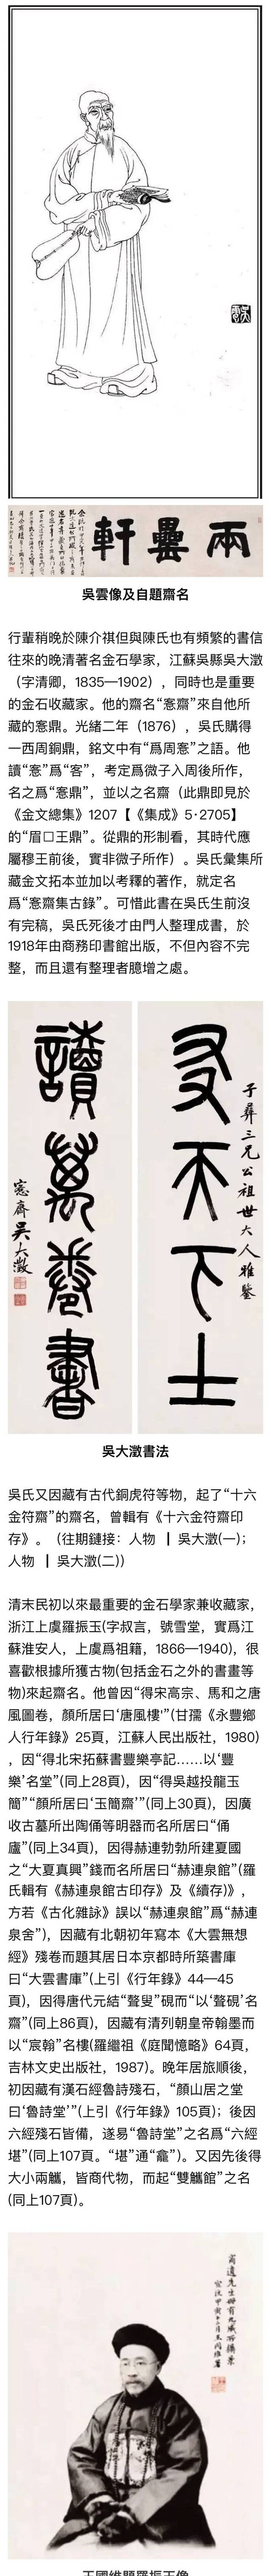 兩罍軒
吳雲像及自題齋名
行輩稍晚於陳介祺但與陳氏也有頻繁的書信
往來的晚清著名金石學家，江蘇吳縣吳大澂
（字清卿，1835—1902），同時也是重要
的金石收藏家。他的齋名“愙齋”來自他所
藏的愙鼎。光緒二年（1876），吳氏購得
一西周銅鼎，銘文中有“爲周愙”之語。他
讀“愙”爲“客”，考定爲微子入周後所作，
名之爲“愙鼎”，並以之名齋（此鼎即見於
《金文總集》1207【《集成》5·2705】
的“眉□王鼎”。從鼎的形制看，其時代應
屬穆王前後，實非微子所作）。吳氏彙集所
藏金文拓本並加以考釋的著作，就定名
爲“愙齋集古錄”。可惜此書在吳氏生前沒
有完稿，吳氏死後才由門人整理成書，於
1918年由商務印書館出版，不但內容不完
整，而且還有整理者臆增之處。
子彝三兄公祖世大人雅鑒
友天下士
讀萬卷書
愙齋吳大澂
吳大澂書法
吳氏又因藏有古代銅虎符等物，起了“十六
金符齋”的齋名，曾輯有《十六金符齋印
存》。（往期鏈接：人物 ┃ 吳大澂(一)；
人物 ┃ 吳大澂(二)）
清末民初以來最重要的金石學家兼收藏家，
浙江上虞羅振玉(字叔言，號雪堂，實爲江
蘇淮安人，上虞爲祖籍，1866—1940)，很
喜歡根據所獲古物(包括金石之外的書畫等
物)來起齋名。他曾因“得宋高宗、馬和之唐
風圖卷，顏所居曰‘唐風樓’”(甘孺《永豐鄉
人行年錄》25頁，江蘇人民出版社，1980)
，因“得北宋拓蘇書豐樂亭記……以‘豐
樂’名堂”(同上28頁)，因“得吳越投龍玉
簡”“顏所居曰‘玉簡齋’”(同上30頁)，因廣
收古墓所出陶俑等明器而名所居曰“俑
廬”(同上34頁)，因得赫連勃勃所建夏國
之“大夏真興”錢而名所居曰“赫連泉館”(羅
氏輯有《赫連泉館古印存》及《續存》)，
方若《古化雜詠》誤以“赫連泉館”爲“赫連
泉舍”)，因藏有北朝初年寫本《大雲無想
經》殘卷而題其居日本京都時所築書庫
曰“大雲書庫”(上引《行年錄》44—45
頁)，因得唐代元結“聱叟”硯而“以‘聱硯’名
齋”(同上86頁)，因藏有清列朝皇帝翰墨而
以“宸翰”名樓(羅繼祖《庭聞憶略》64頁，
吉林文史出版社，1987)。晚年居旅順後，
初因藏有漢石經魯詩殘石，“顏山居之堂
曰‘魯詩堂’”(上引《行年錄》105頁)；後因
六經殘石皆備，遂易“魯詩堂”之名爲“六經
堪”(同上107頁。“堪”通“龕”)。又因先後得
大小兩觿，皆商代物，而起“雙觿館”之名
(同上107頁)。